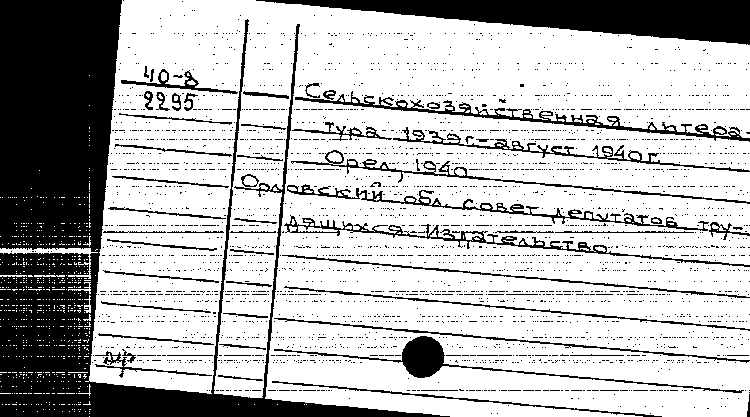 40-8
2295
Сельскохозяйственная литера-
тура 1939г.-август 1940г.
Орел, 1940
Орловский обл. совет депутатов тру-
дящихся. Издательство